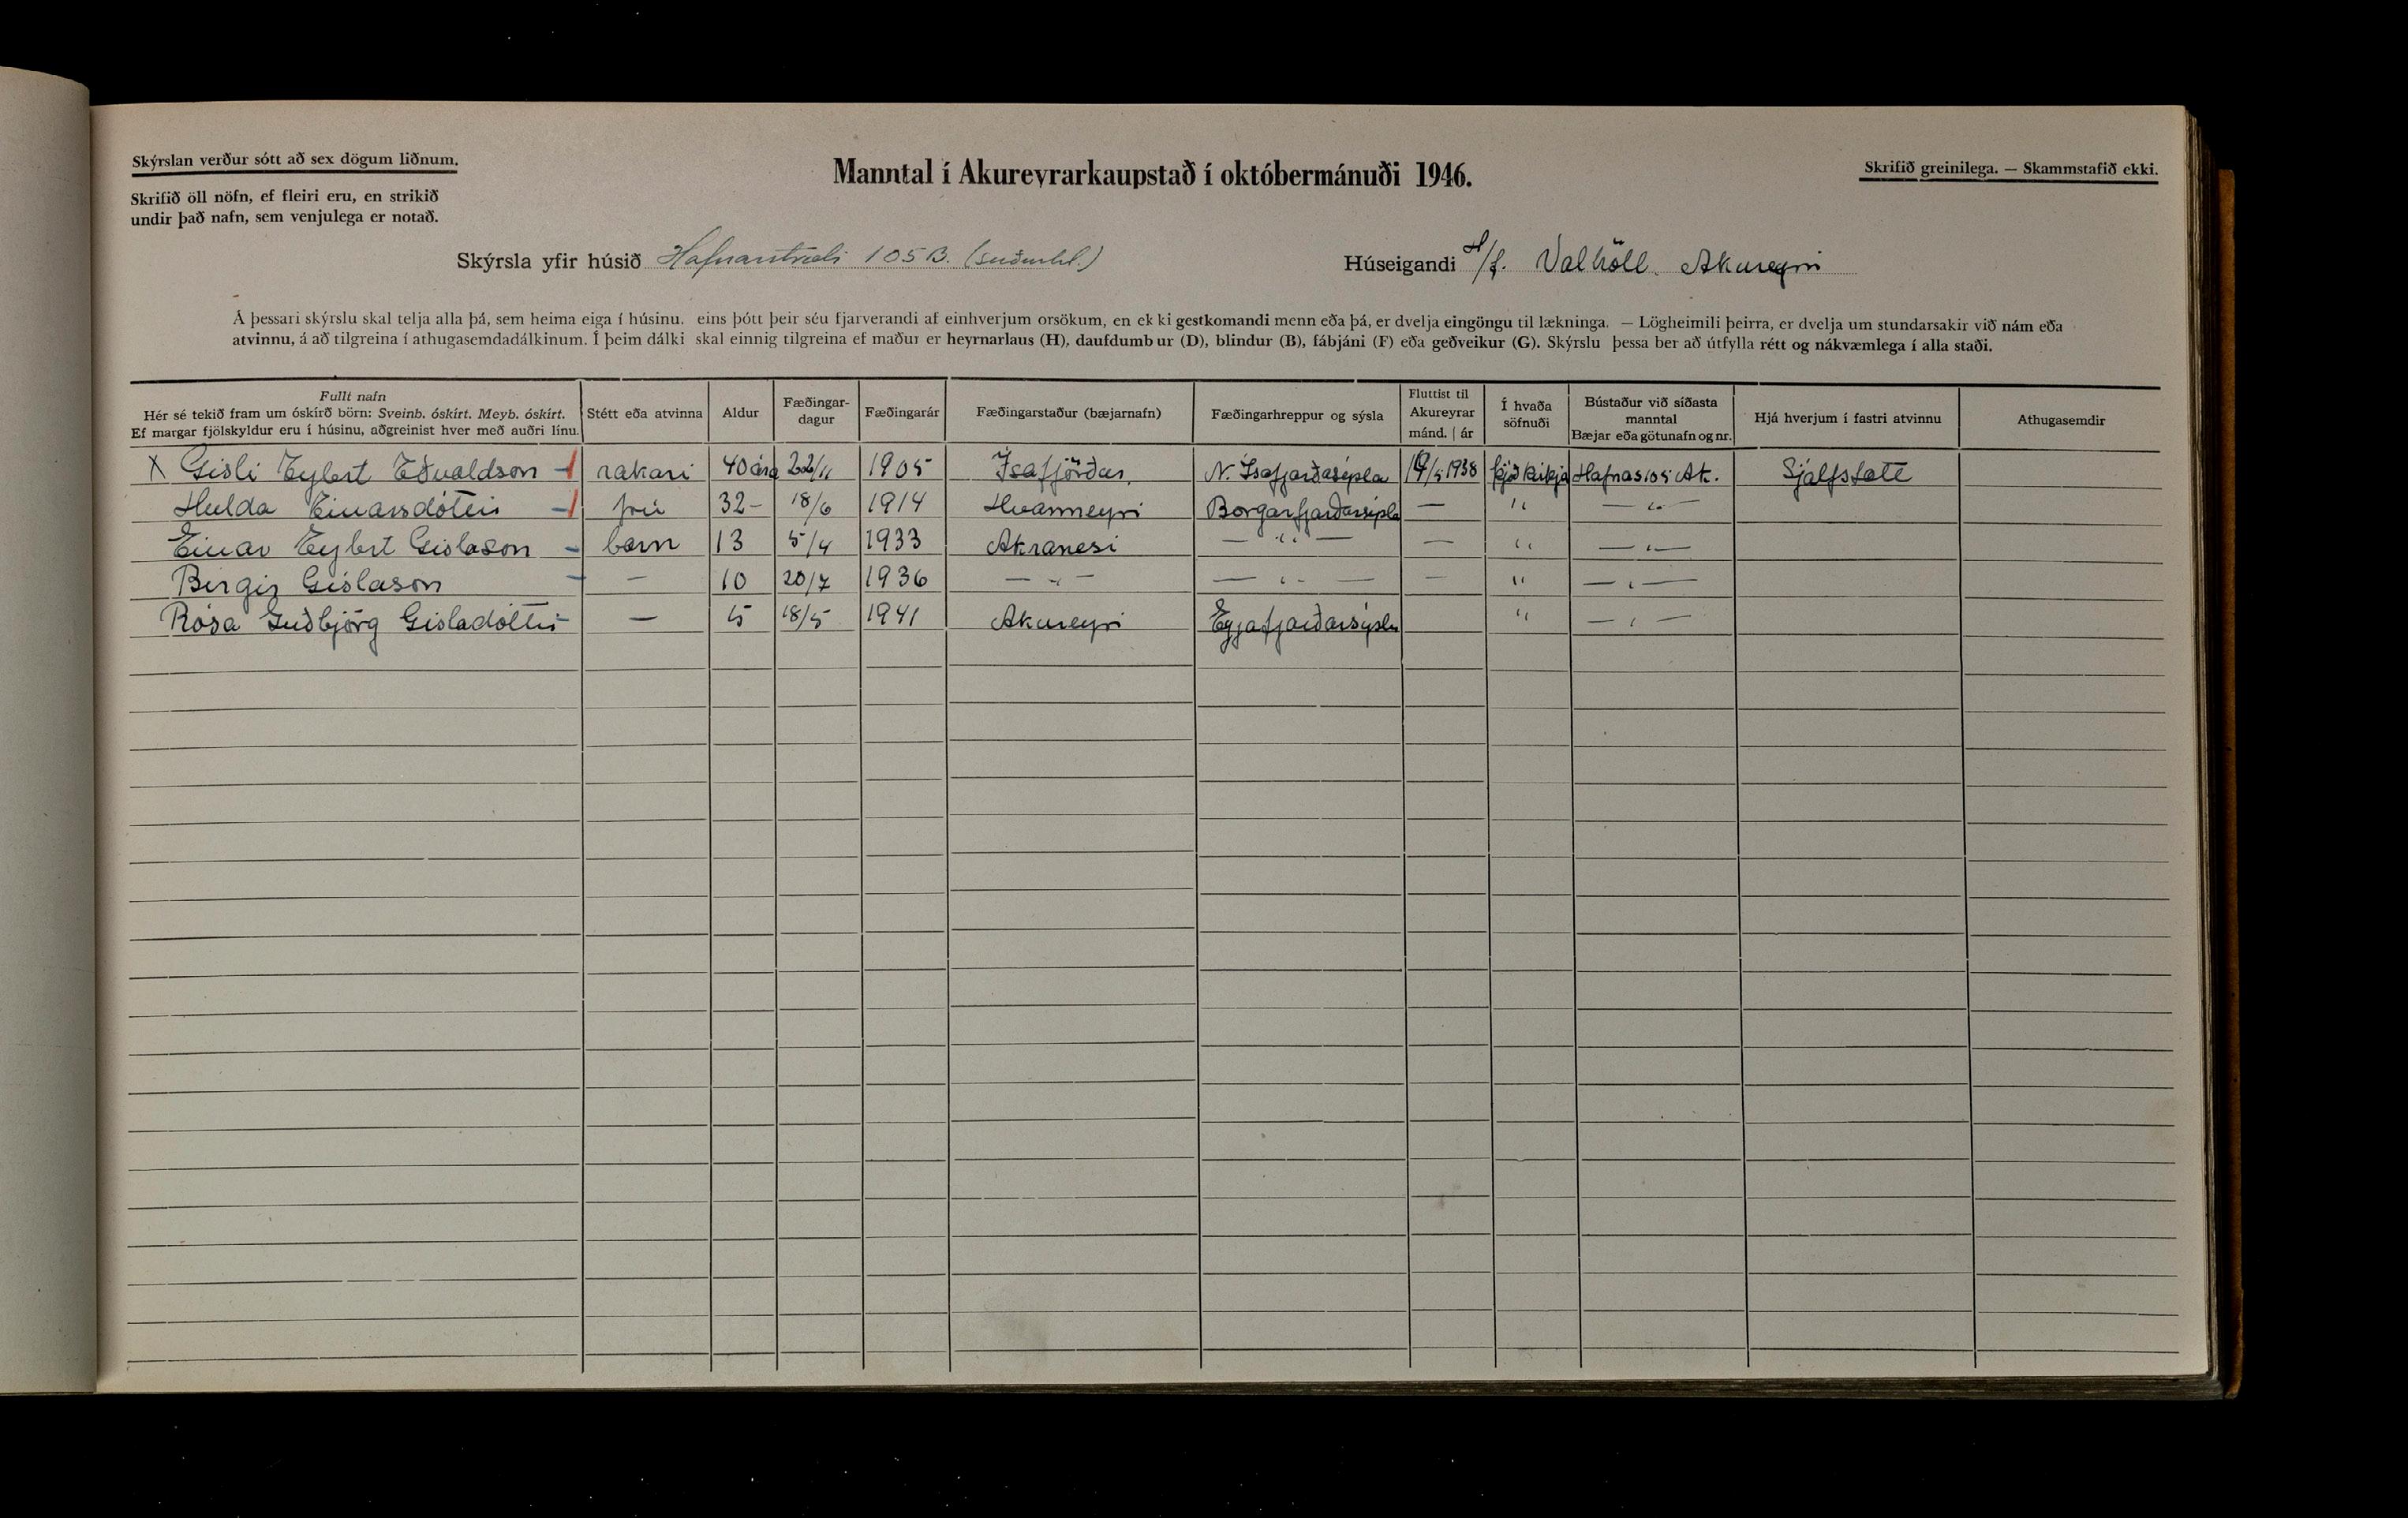 Skýrslan verður sótt að sex dögum liðnum.
Skrifið öll nöfn, ef fleiri eru, en strikið
undir það nafn, sem venjulega er notað.
Manntal í Akureyrarkaupstað í októbermánuði 1946.
Skrifið greinilega. — Skammstafið ekki.
Skýrsla yfir húsið Hafnarstræti 105 B. (suðurhl.)
Húseigandi H/f. Valhöll. Akureyri
Á þessari skýrslu skal telja alla þá, sem heima eiga í húsinu, eins þótt þeir séu fjarverandi af einhverjum orsökum, en ekki gestkomandi menn eða þá, er dvelja eingöngu til lækninga. — Lögheimili þeirra, er dvelja um stundarsakir við nám eða
atvinnu, á að tilgreina í athugasemdadálkinum. Í þeim dálki skal einnig tilgreina ef maður er heyrnarlaus (H), daufdumbur (D), blindur (B), fábjáni (F) eða geðveikur (G). Skýrslu þessa ber að útfylla rétt og nákvæmlega í alla staði.
Fullt nafn
Hér sé tekið fram um óskírð börn: Sveinb. óskírt. Meyb. óskírt.
Ef margar fjölskyldur eru í húsinu, aðgreinist hver með auðri línu.
Stétt eða atvinna
Aldur
Fæðingar-
dagur
Fæðingarár
Fæðingarstaður (bæjarnafn)
Fæðingarhreppur og sýsla
Fluttist til
Akureyrar
mánd. | ár
Í hvaða
söfnuði
Bústaður við síðasta
manntal
Bæjar eða götunafn og nr.
Hjá hverjum í fastri atvinnu
Athugasemdir
X Gisli Eylert Eðvaldson - rakari 40 ára 22/11 1905 Ísafjörður. N. Ísafjarðasýsla /5 1938 þjóðkirkja Hafnas 105 Ak. Sjálfstæte
Hulda Einarsdóttir - frú 32 - 18/6 1914 Hvanneyri Borgarfjarðarsýsla — " — " —
Einar Eylert Gislason - barn 13 5/4 1933 Akranesi — " — — " — " —
Birgir Gíslason - — 10 20/7 1936 — " — — " — — " — " —
Rósa Guðbjörg Gisladóttir - — 5 18/5 1941 Akureyri Eyjafjarðarsýslu " — " —